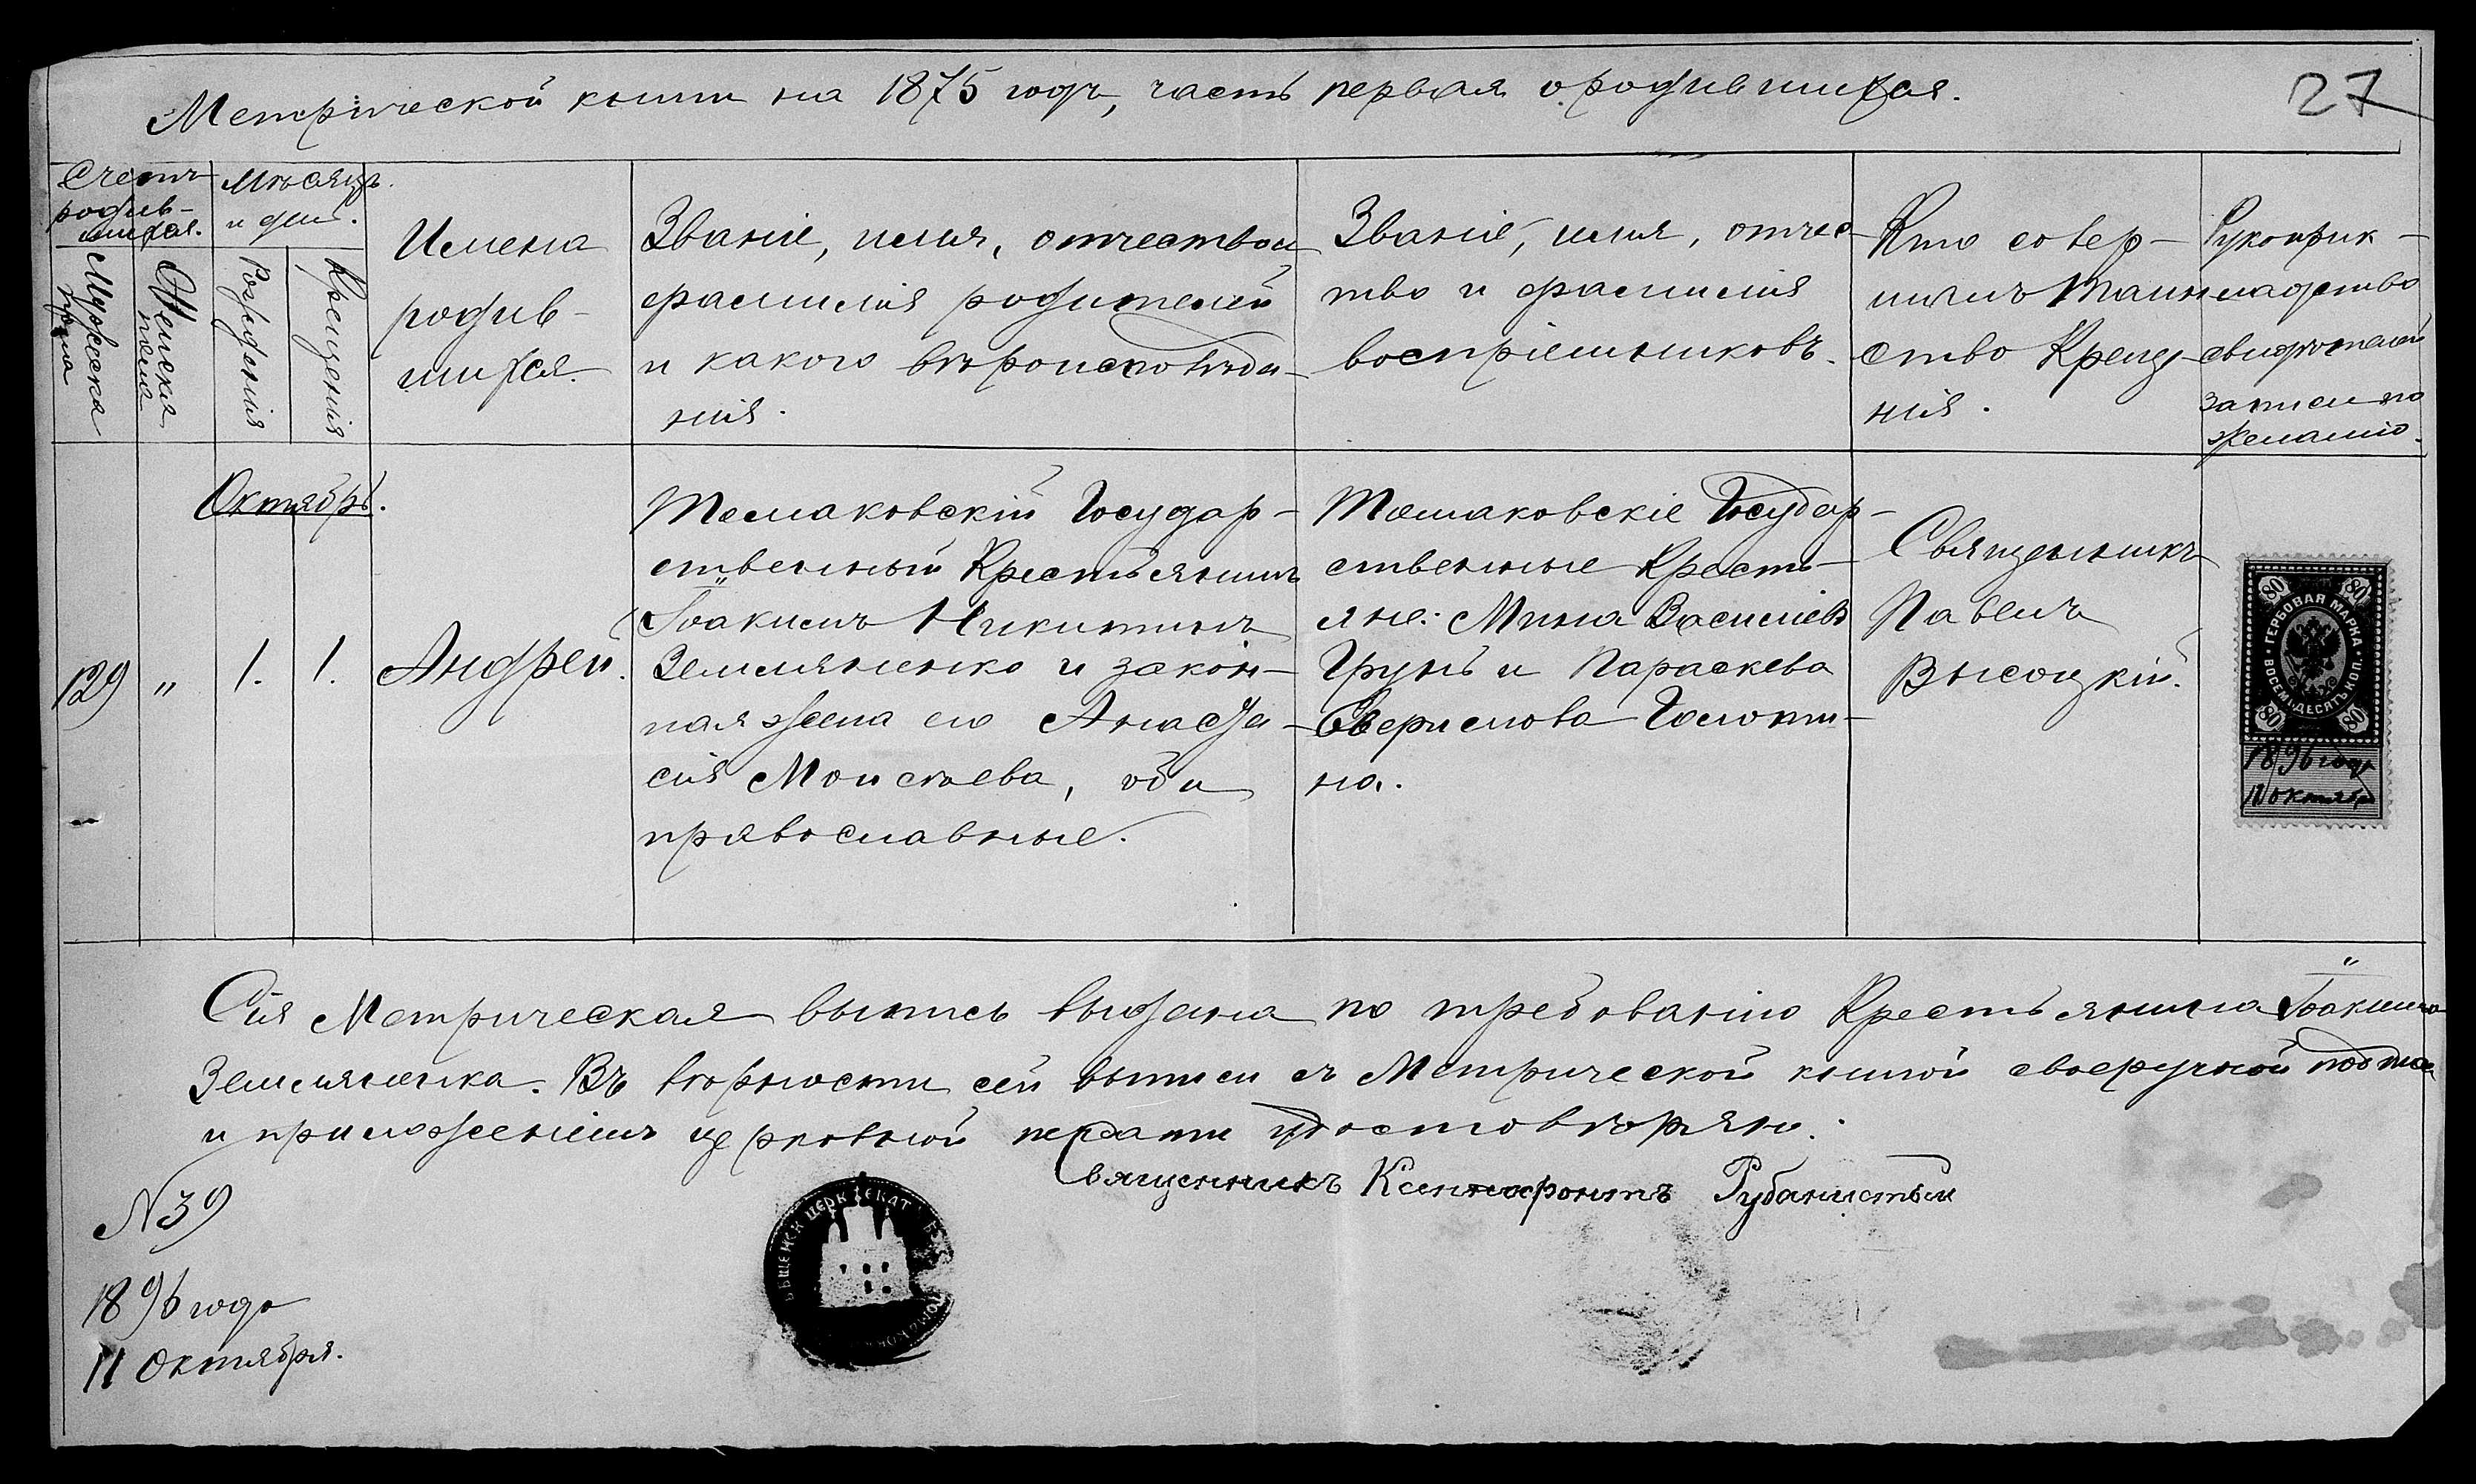 Метрической книги на 1875 годъ, часть первая о родившихся.
27
Счетъ
родив-
шихся.
Мѣсяцъ
и день.
Мужеска
пола
Женска
пола
Рожденія
Крещенія
Имена
родив-
шихся.
Званіе, имя, отчество и
фамилія родителей
и какого вѣроисповѣда-
нія.
Званіе, имя, отчес-
тво и фамилія
воспріемниковъ.
Кто совер-
шилъ таин
ство Креще-
нія.
Рукоприк-
ладство
свидѣтелей
записи по
желанію.
Октябрь.
129 " 1. 1. Андрей.
Томаковскій Государ-
ственный Крестьянинъ
Іоакимъ Никитинъ
Земляненко и закон-
ная жена его Анаста-
сія Моисѣева, оба
православные.
Томаковскіе Государ-
ственные Кресть-
яне: Мина Василіевъ
Грунь и Параскева
Голоти-
на.
Священникъ
Павелъ
Высоцкій.
80 80
ГЕРБОВАЯ МАРКА
ВОСЕМЬДЕСЯТЪ КОП.
80 80
1896 года
11 октября
Сія Метрическая выпись выдана по требованію Крестьянина Іоакима
Земляненка. Въ вѣрности сей выписи съ Метрической книгой своеручной подписью
и приложеніемъ церковной печати удостовѣряю.
Священникъ Ксенофонтъ
N 39
1896 года
11 Октября.